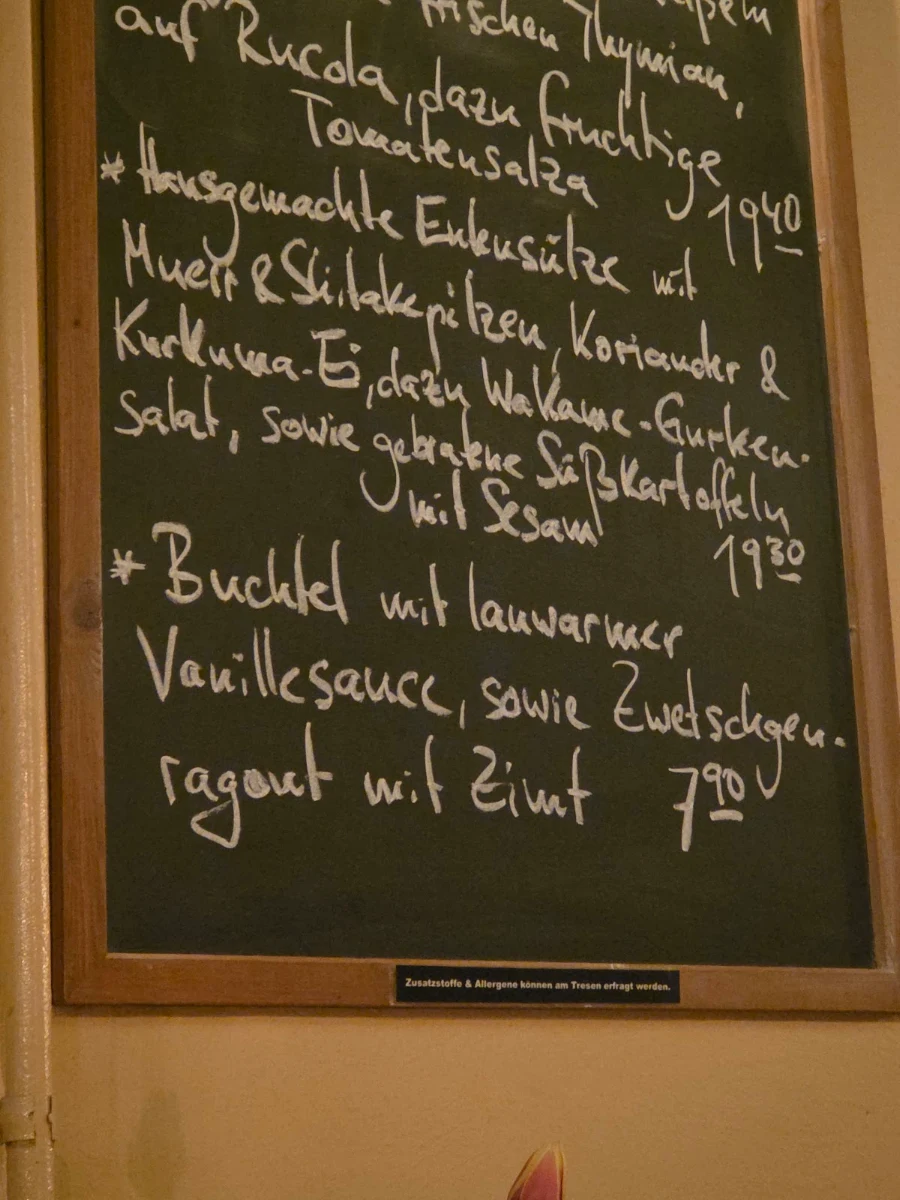 frischen Thymian,
auf Rucola, dazu fruchtige
Tomatensalza 1940
* Hausgemachte Entensülze mit
Muerr & Shitakepilzen, Koriander &
Kurkuma-Ei, dazu Wakame-Gurken-
Salat, sowie gebratene Süßkartoffeln
mit Sesam 1930
* Buchtel mit lauwarmer
Vanillesauce, sowie Zwetschgen-
ragout mit Zimt 790
Zusatzstoffe & Allergene können am Tresen erfragt werden.